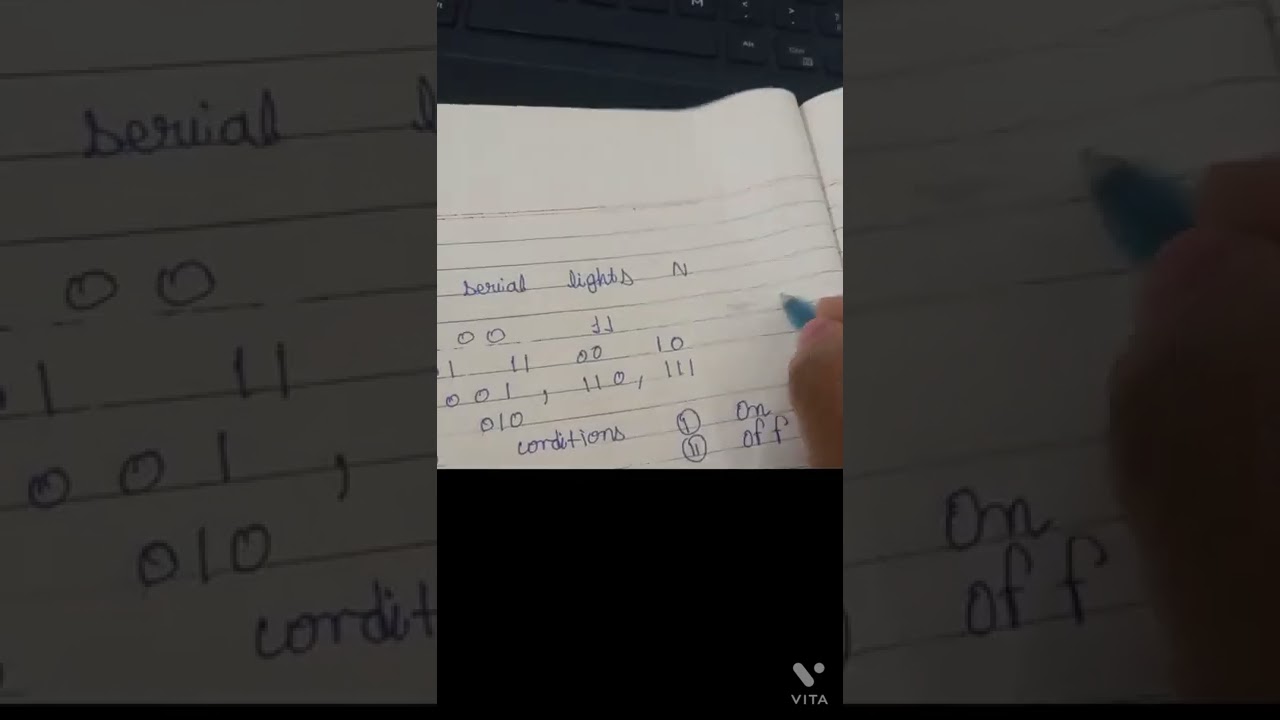 serial lights N
00 11
1 11 00 10
001, 110, 111
010
conditions I On
II Off
VITA